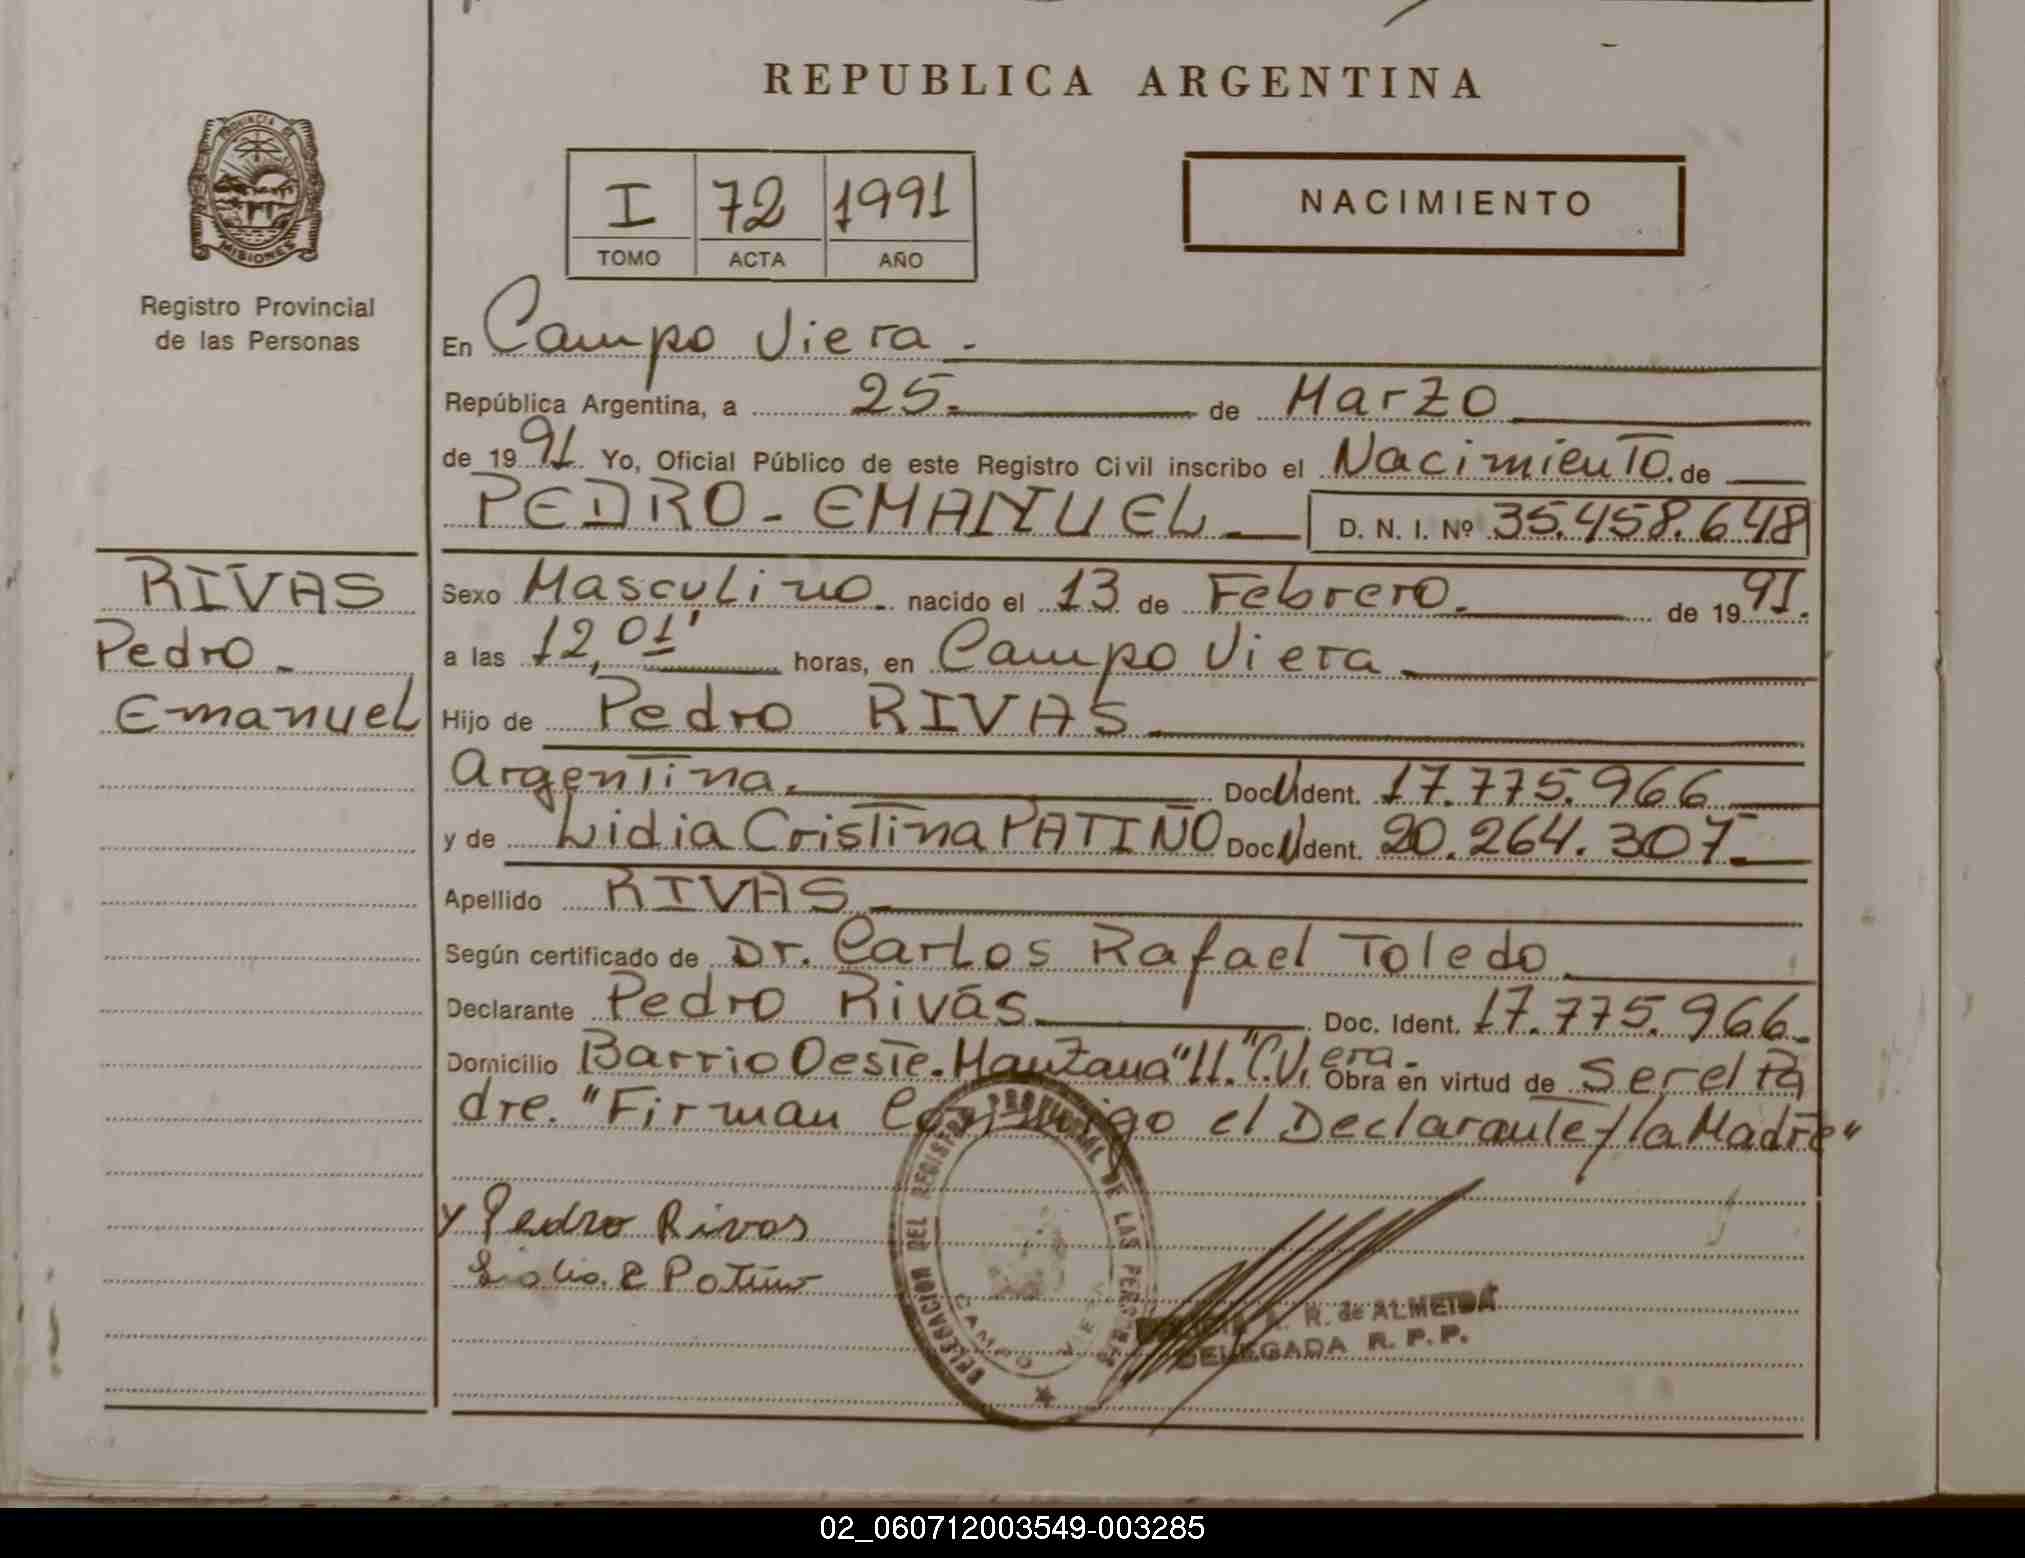 REPUBLICA ARGENTINA
PROVINCIA DE
MISIONES
Registro Provincial
de las Personas
I 72 1991
TOMO ACTA AÑO
NACIMIENTO
En Campo Viera.
República Argentina, a 25. de Marzo
de 1991. Yo, Oficial Público de este Registro Civil inscribo el Nacimiento. de
PEDRO - EMANUEL D. N. I. Nº 35.458.648
RIVAS
Pedro -
Emanuel
Sexo Masculino. nacido el 13 de Febrero. de 1991.
a las 12,01' horas, en Campo Viera
Hijo de Pedro RIVAS
Argentina. Doc. Ident. 17.775.966
y de Lidia Cristina PATIÑO Doc. Ident. 20.264.307
Apellido RIVAS
Según certificado de Dr. Carlos Rafael Toledo
Declarante Pedro Rivas Doc. Ident. 17.775.966.
Domicilio Barrio Oeste. Manzana "11." C. Viera. Obra en virtud de Ser el Pa
dre. "Firman Conmigo el Declarante y la Madre"
y Pedro Rivas
Lidia. C Patiño
DELEGACION DEL REGISTRO PROVINCIAL DE LAS PERSONAS
CAMPO VIERA
R. de ALMEIDA
DELEGADA R. P. P.
02_060712003549-003285